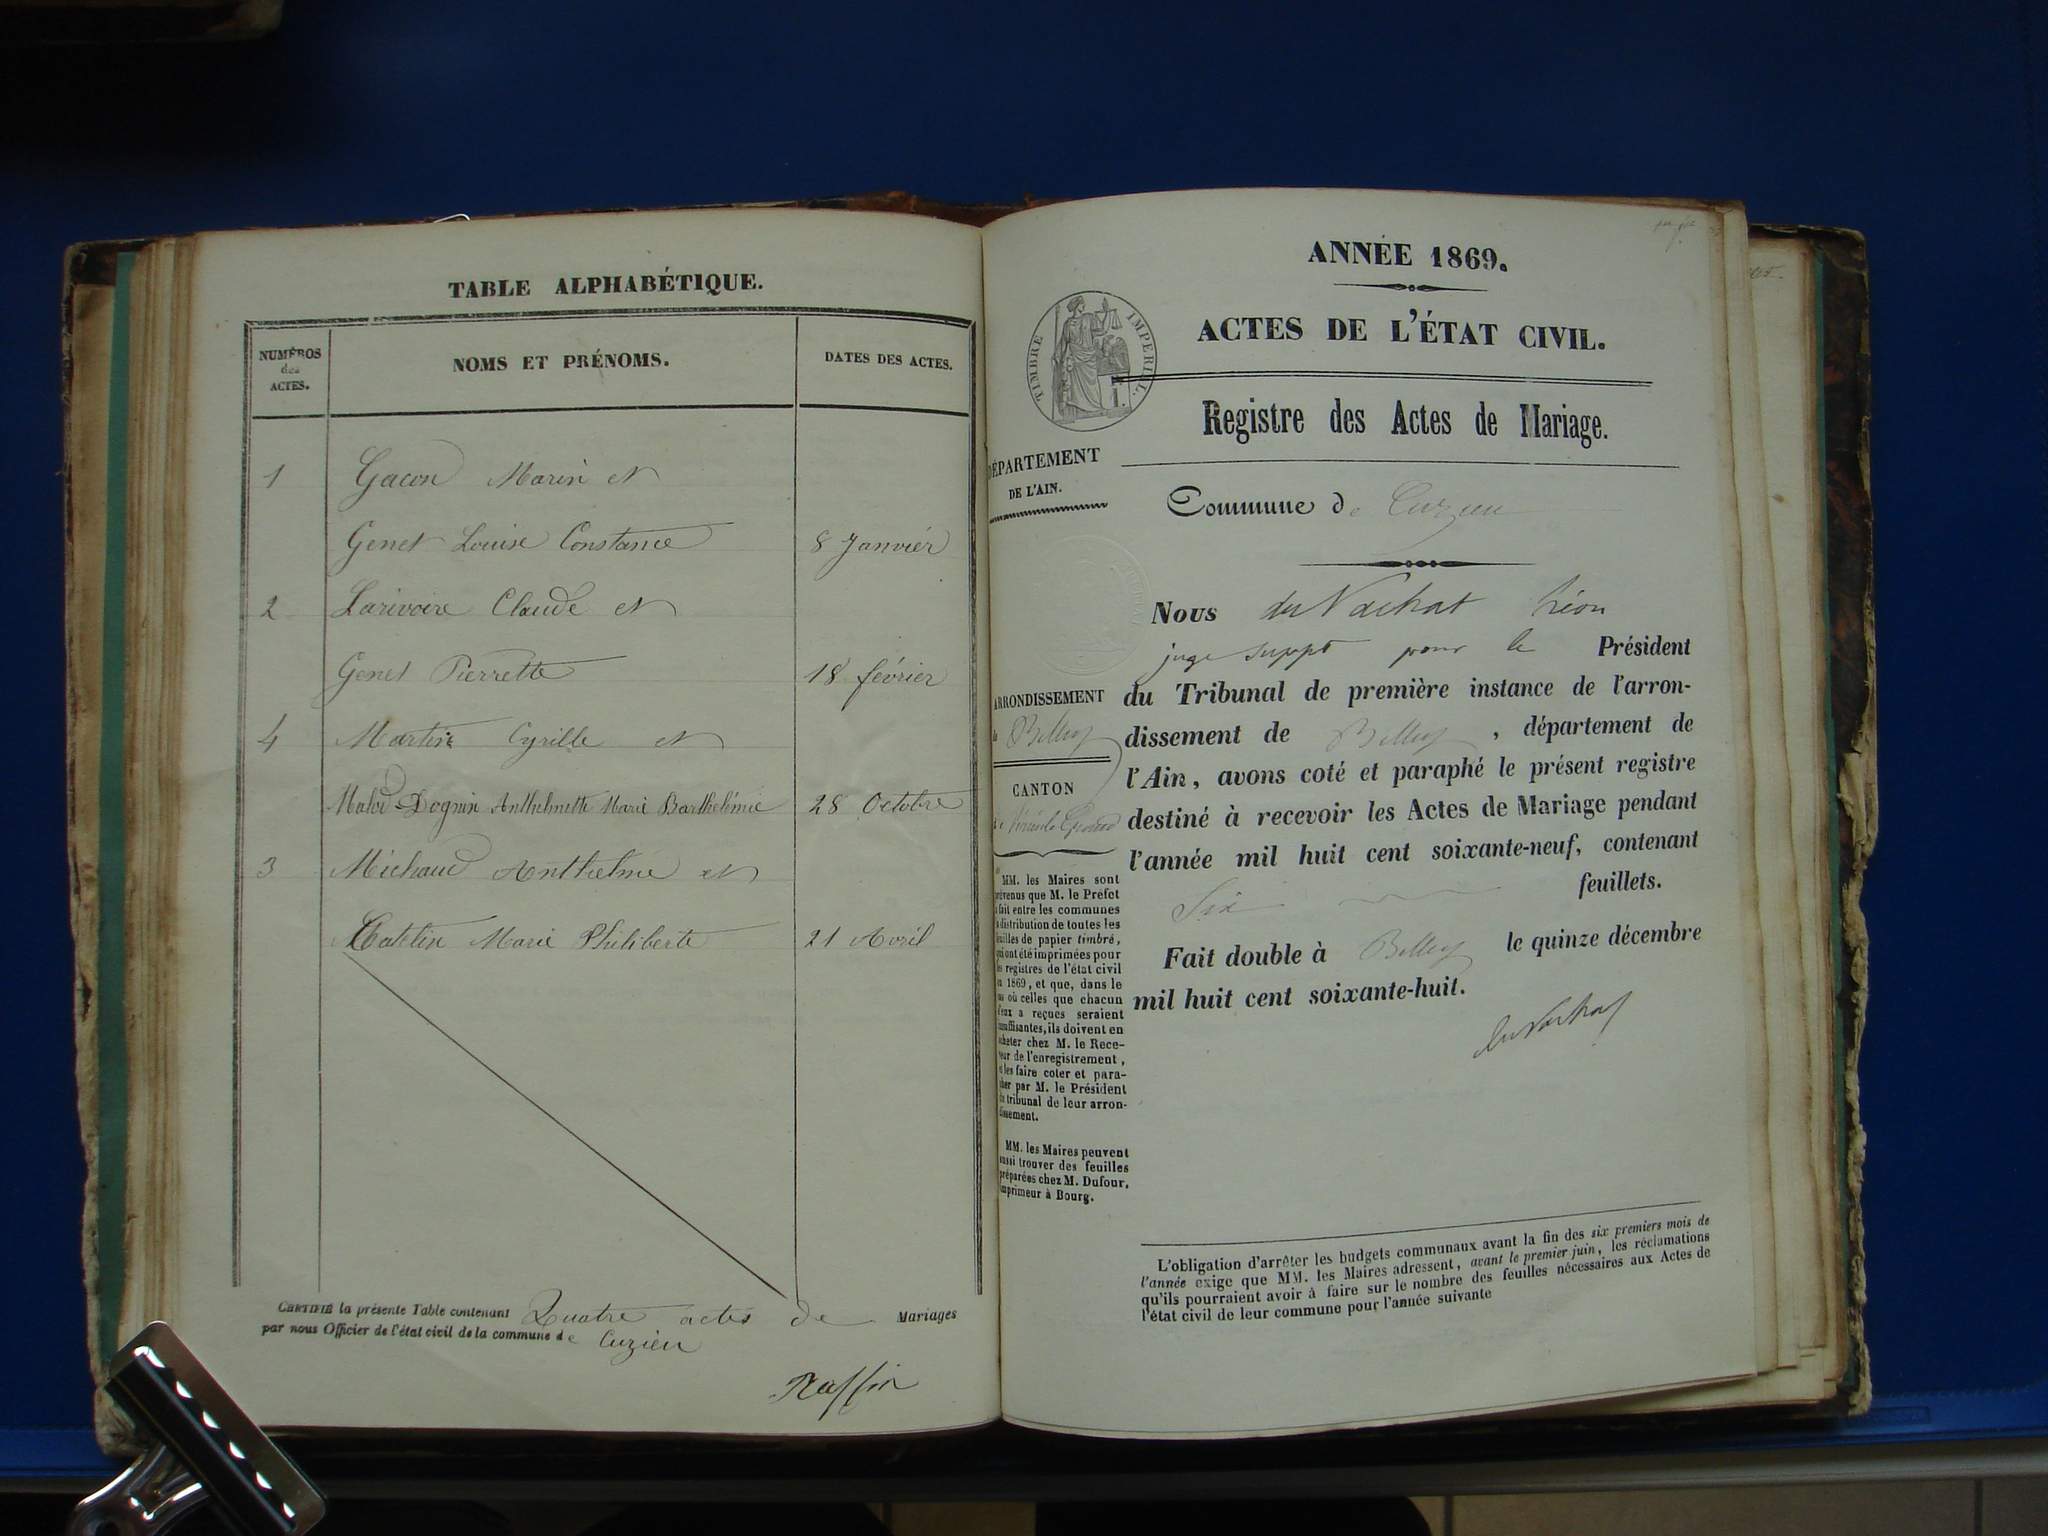 TABLE ALPHABÉTIQUE.
NUMÉROS des ACTES.
NOMS ET PRÉNOMS.
DATES DES ACTES.
1 Gacon Marin et
Genet Louise Constance 8 Janvier
2 Larivoire Claude et
Genet Pierrette 18 février
4 Martin Cyrille et
Dognin Anthelmette Marie Barthelémie 28 Octobre
3 Michaud Anthelme et
Marie Philiberte 21 Avril
CERTIFIÉ la présente Table contenant Quatre actes de Mariages
par nous Officier de l'état civil de la commune de Cuzieu
Raffin
ANNÉE 1869.
TIMBRE IMPERIAL.
ACTES DE L'ÉTAT CIVIL.
Registre des Actes de Mariage.
DÉPARTEMENT
DE L'AIN.
Commune de Cuzieu
Nous du Vachat Léon
juge suppt pour le Président
du Tribunal de première instance de l'arron-
dissement de Belley, département de
l'Ain, avons coté et paraphé le présent registre
destiné à recevoir les Actes de Mariage pendant
l'année mil huit cent soixante-neuf, contenant
Six feuillets.
Fait double à Belley le quinze décembre
mil huit cent soixante-huit.
du Vachat
ARRONDISSEMENT
de Belley
CANTON
de Virieu le Grand
MM. les Maires sont
prévenus que M. le Préfet
a fait entre les communes
la distribution de toutes les
feuilles de papier timbré,
qui ont été imprimées pour
les registres de l'état civil
en 1869, et que, dans le
cas où celles que chacun
d'eux a reçues seraient
insuffisantes, ils doivent en
acheter chez M. le Rece-
veur de l'enregistrement,
et les faire coter et para-
pher par M. le Président
du tribunal de leur arron-
dissement.
MM. les Maires peuvent
aussi trouver des feuilles
préparées chez M. Dufour,
imprimeur à Bourg.
L'obligation d'arrêter les budgets communaux avant la fin des six premiers mois de
l'année exige que MM. les Maires adressent, avant le premier juin, les réclamations
qu'ils pourraient avoir à faire sur le nombre des feuilles nécessaires aux Actes de
l'état civil de leur commune pour l'année suivante